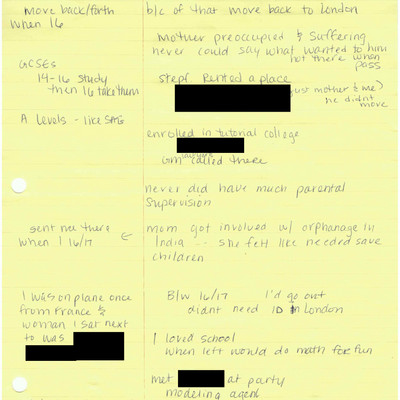 move back/forth
when 16
GCSEs
14-16 study
then 16 take them
A levels - like SATS
sent me there
when I 16/17 ←
I was on plane once
from France &
woman I sat next
to was
b/c of that move back to London
mother preoccupied & suffering
never could say what wanted to him
not there when
pass
stepf. Rented a place
just mother & me)
he didnt
move
enrolled in tutorial college
GM called there
never did have much parental
supervision
mom got involved w/ orphanage in
India .. she felt like needed save
children
B/w 16/17 I'd go out
didnt need ID in London
I loved school
when left would do math for fun
met at party
modeling agent